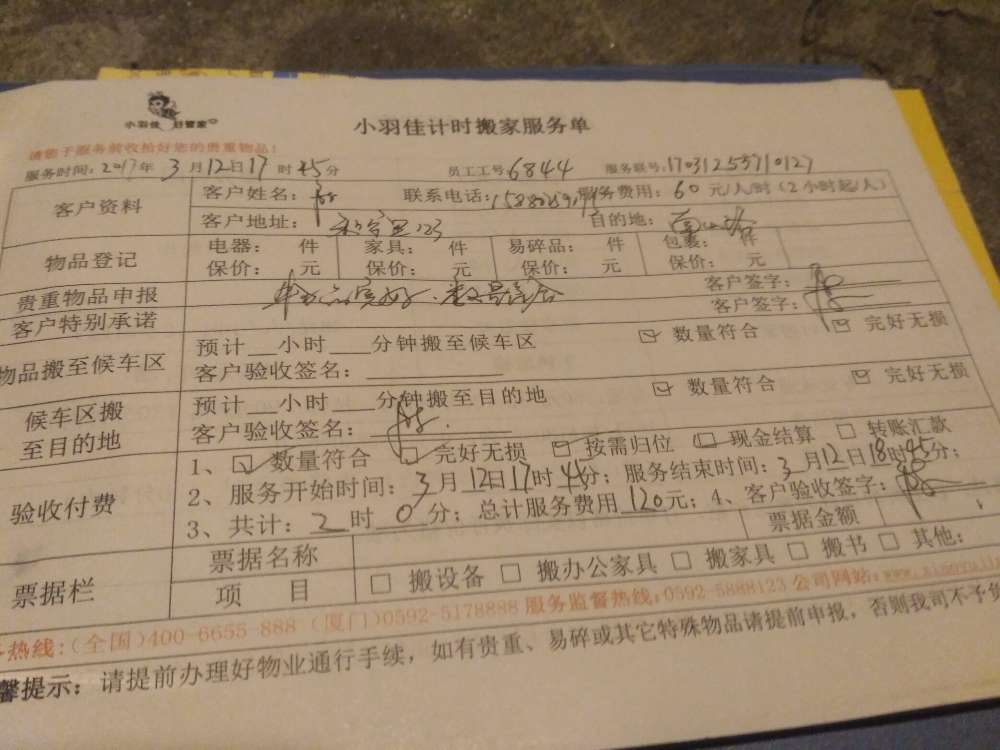 小羽佳 好管家
小羽佳计时搬家服务单
请您于服务前收拾好您的贵重物品!
服务时间: 2017年 3月12日17时45分 员工工号 6844 服务联号: 17031253710127
客户资料 客户姓名: 联系电话: 服务费用: 60元/人/时(2小时起/人)
客户地址: 目的地:
物品登记 电器: 件 家具: 件 易碎品: 件 包裹: 件
保价: 元 保价: 元 保价: 元 保价: 元
贵重物品申报 客户签字:
客户特别承诺 完好.数量符合 客户签字:
物品搬至候车区 预计__小时___分钟搬至候车区 数量符合 完好无损
客户验收签名:
候车区搬至目的地 预计__小时___分钟搬至目的地 数量符合 完好无损
客户验收签名:
验收付费 1、数量符合 完好无损 按需归位 现金结算 转账汇款
2、服务开始时间: 3月12日17时45分; 服务结束时间: 3月12日18时45分;
3、共计: 2时0分; 总计服务费用120元; 4、客户验收签字:
票据栏 票据名称 票据金额
项 目 搬设备 搬办公家具 搬家具 搬书 其他:
热线:(全国)400-6655-888 (厦门)0592-5178888 服务监督热线:0592-5888123 公司网站:
馨提示: 请提前办理好物业通行手续, 如有贵重、易碎或其它特殊物品请提前申报, 否则我司不予